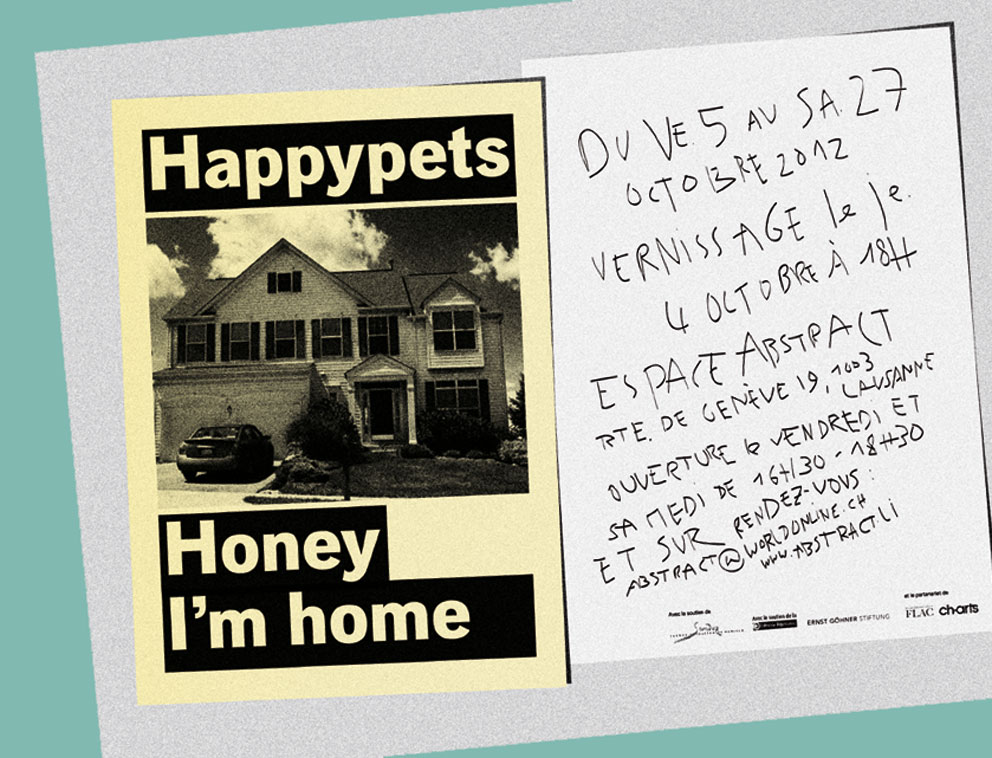 Happypets
Honey
I'm home
DU VE. 5 AU SA. 27
OCTOBRE 2012
VERNISSAGE le je.
4 OCTOBRE À 18H
ESPACE ABSTRACT
RTE. DE GENÈVE 19, 1003 LAUSANNE
OUVERTURE le VENDREDI ET
SAMEDI DE 16H30 - 18H30
ET SUR RENDEZ-VOUS :
ABSTRACT@WORLDONLINE.CH
WWW.ABSTRACT.LI
Avec le soutien de
Sandoz
Avec le soutien de la
ERNST GÖHNER STIFTUNG
et le partenariat de
FLAC
ch-arts